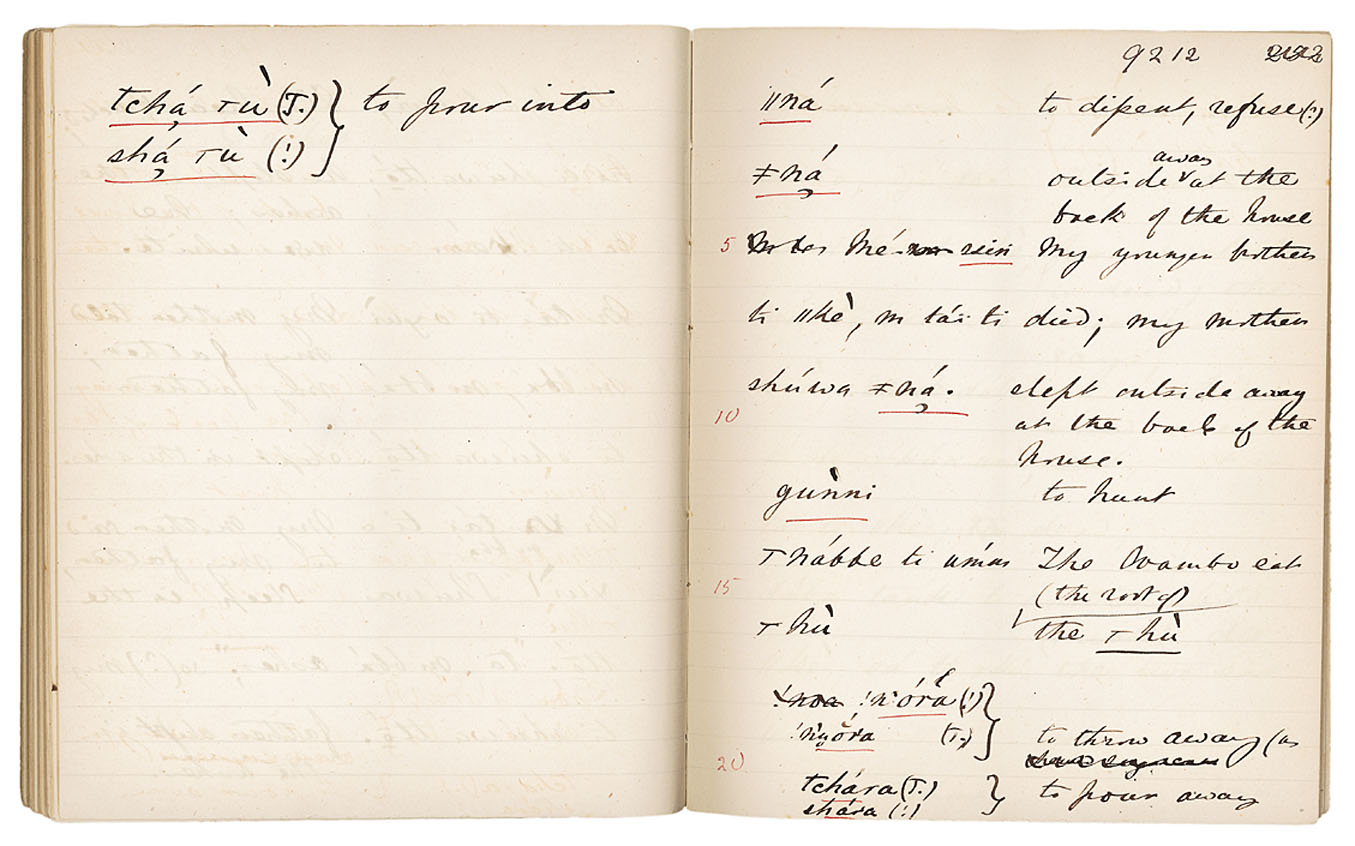 tchá̦ ⊤ù (T.) } to pour into
shá̦ ⊤ù (!)
9212
ǁná to dissent, refuse (?)
ǂná̦ outside away at the
back of the house
5 Mé- My younger brother
ti ǁkè, m táï ti died; my mother
shúwa ǂná̦. slept outside away
10 at the back of the
house.
gùnni to hunt
⊤nábbe ti umm The Ovambo eat
15 (the root of)
⊤hù the ⊤hù
!nóra (!)
!nyóra (T.) } to throw away (as
20
tchára (T.) } to pour away
shára (!)